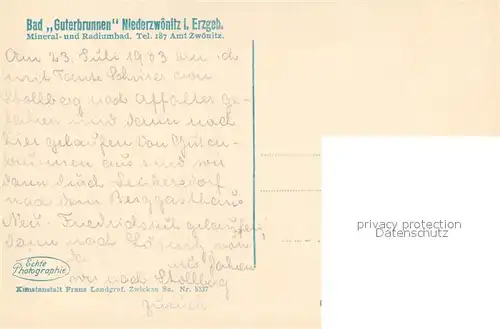 Bad „Guterbrunnen" Niederzwönitz i. Erzgeb.
Mineral- und Radiumbad. Tel. 187 Amt Zwönitz.
Am 23. Juli 1933 bin ich
mit Tante von
Stollberg nach Affalter ge-
fahren und dann nach
hier gelaufen Von Guten-
brunnen aus sind wir
dann durch
nach dem Berggasthaus
Neu-Friedrichsruh gelaufen
dann nach Lößnitz von
da aus fahren
wir nach Stollberg
zurück
Echte
Photographie
Kunstanstalt Franz Landgraf, Zwickau Sa. Nr. 5337
privacy protection
watermark